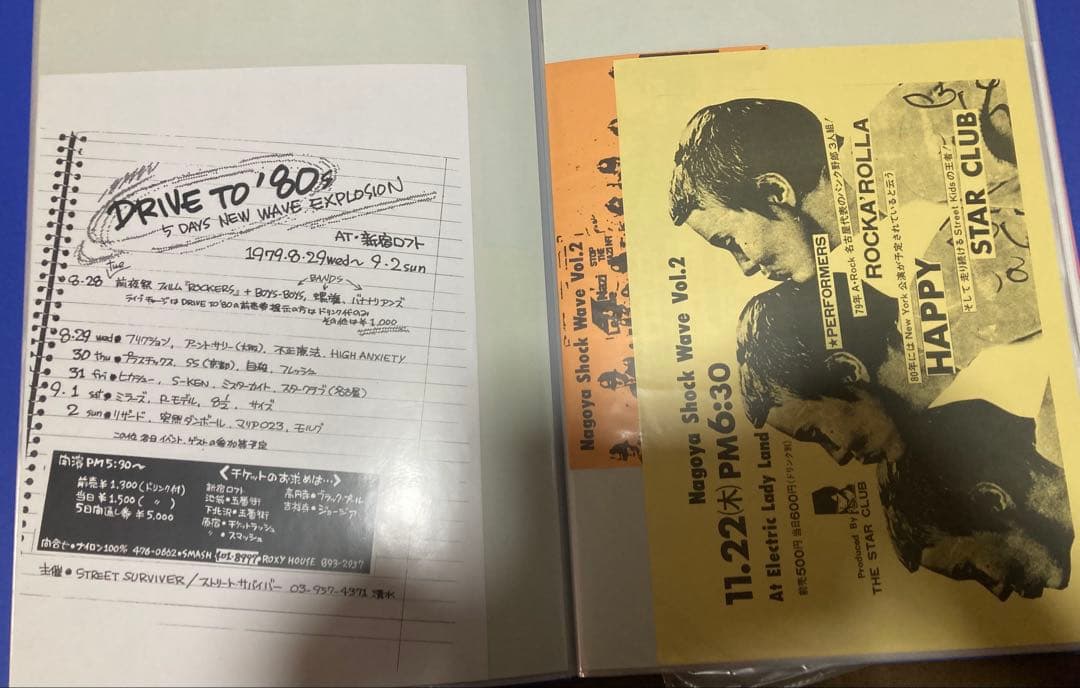 DRIVE TO '80s
5 DAYS NEW WAVE EXPLOSION
AT・新宿ロフト
1979.8.29wed〜9.2sun
BANDS
8.28 tue 前夜祭 フィルム「ROCKERS」+ BOYS-BOYS, 螺旋, バナナリアンズ
ライブチャージはDRIVE TO '80の前売券提示の方はドリンク代のみ
その他は¥1,000
8.29 wed・フリクション, アーントサリー(大阪), 不正療法, HIGH ANXIETY
30 thu・プラスチックス, SS(京都), 自殺, フレッシュ
31 fri・ヒカシュー, S-KEN, ミスターカイト, スタークラブ(名古屋)
9.1 sat・ミラーズ, P.モデル, 8½, サイズ
2 sun・リザード, 突然ダンボール, マリア023, モルグ
この他各日イベント、ゲストの参加算予定
開演PM5:30〜
前売¥1,300(ドリンク付)
当日¥1,500( 〃 )
5日間通し券 ¥5,000
<チケットのお求めは…>
新宿ロフト
池袋・五番街
下北沢・五番街
原宿・チケットラッシュ
〃・スマッシュ
高円寺・ブラックプール
吉祥寺・ジョージア
問合せ・ナイロン100% 476-0662・SMASH 401-8977・ROXY HOUSE 393-2037
主催・STREET SURVIVER/ストリートサバイバー 03-957-4371 清水
Nagoya Shock Wave Vol.2
STOP
THE
NAZI
Nagoya Shock Wave Vol.2
11.22(木)PM6:30
At Electric Lady Land
前売500円 当日600円(ドリンク別)
★PERFORMERS
79年 A-Rock 名古屋代表のパンク野郎3人組!
ROCKA'ROLLA
80年にはNew York 公演が予定されていると云う
HAPPY
そして 走り続けるStreet Kidsの王者!
STAR CLUB
Produced By
THE STAR CLUB